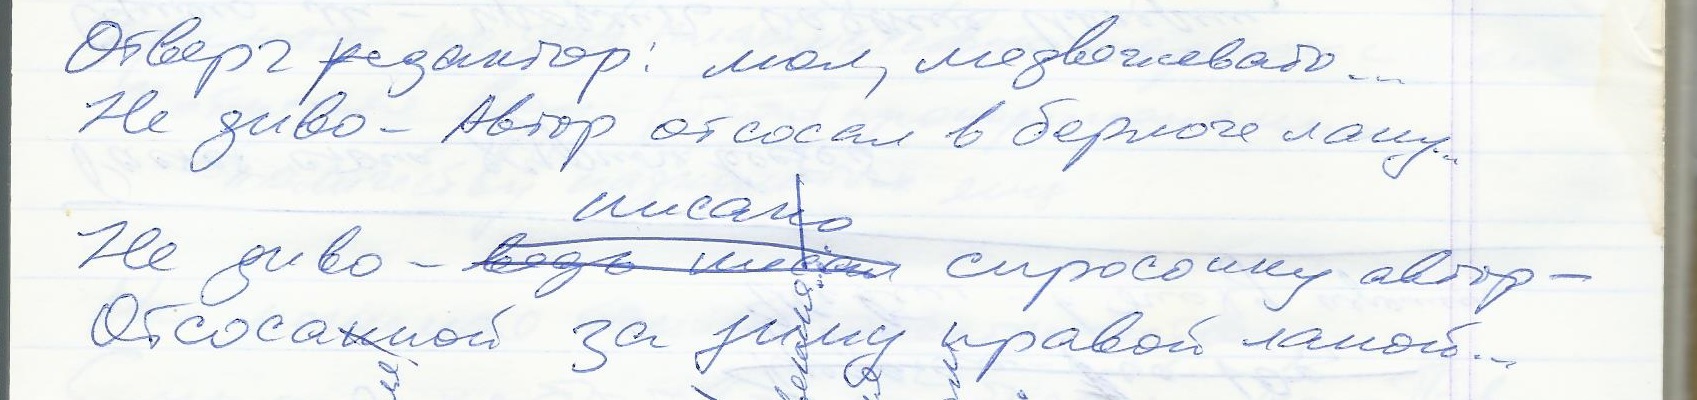 Отверг редактор: мол, медвежевато...
Не диво - Автор отсосал в берлоге лапу...
писано
Не диво - ведь писал спросонку автор -
Отсосанной за зиму правой лапой...